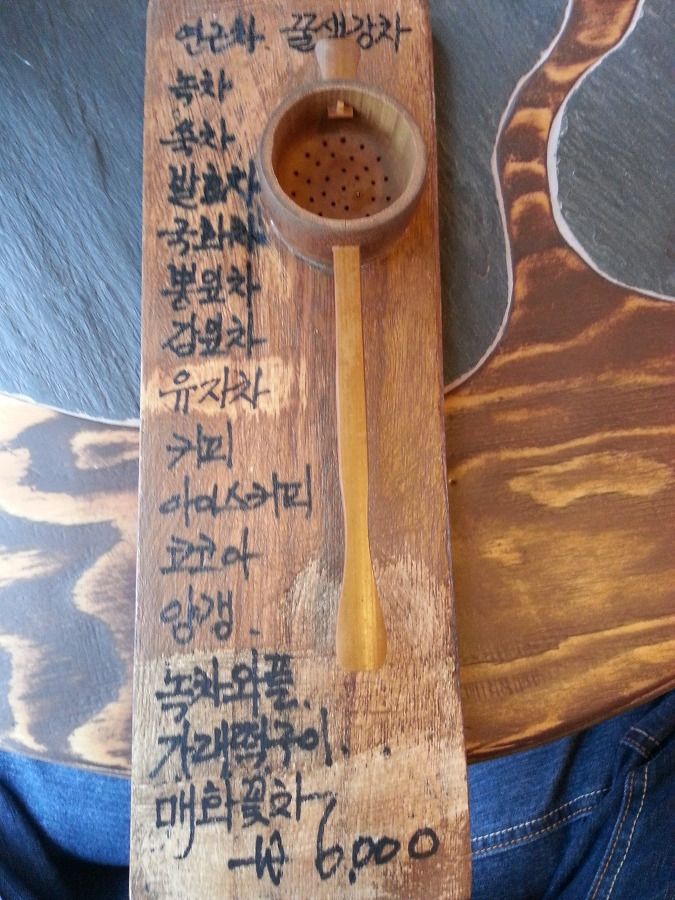 연근차 꿀생강차
녹차
쑥차
발효차
국화차
뽕잎차
감잎차
유자차
커피
아이스커피
코코아
양갱.
녹차와플.
가래떡구이...
매화꽃차
₩ 6,000